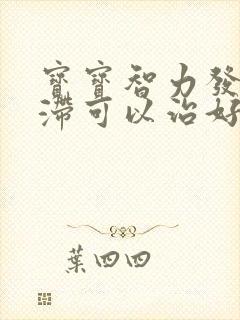 寶寶智力發
滯可以治好
葉四四